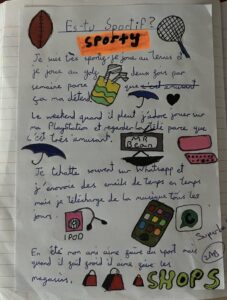 Es-tu Sportif?
SPORTY
Je suis très sporty je joue au tennis et
je joue au golf deux fois par
semaine parce que c'est amusant
ça me détend
Le weekend quand il pleut j'adore jouer sur
ma PlayStation et regarder la télé parce que
c'est très amusant.
MR
Bean
Je tchatte souvent sur Whatsapp et
j'envoie des emails de temps en temps
mais je télécharge de la musique tous les
jours.
IPOD
En été mon ami aime faire du sport mais
quand il fait froid il aime faire les
magasins.
SHOPS